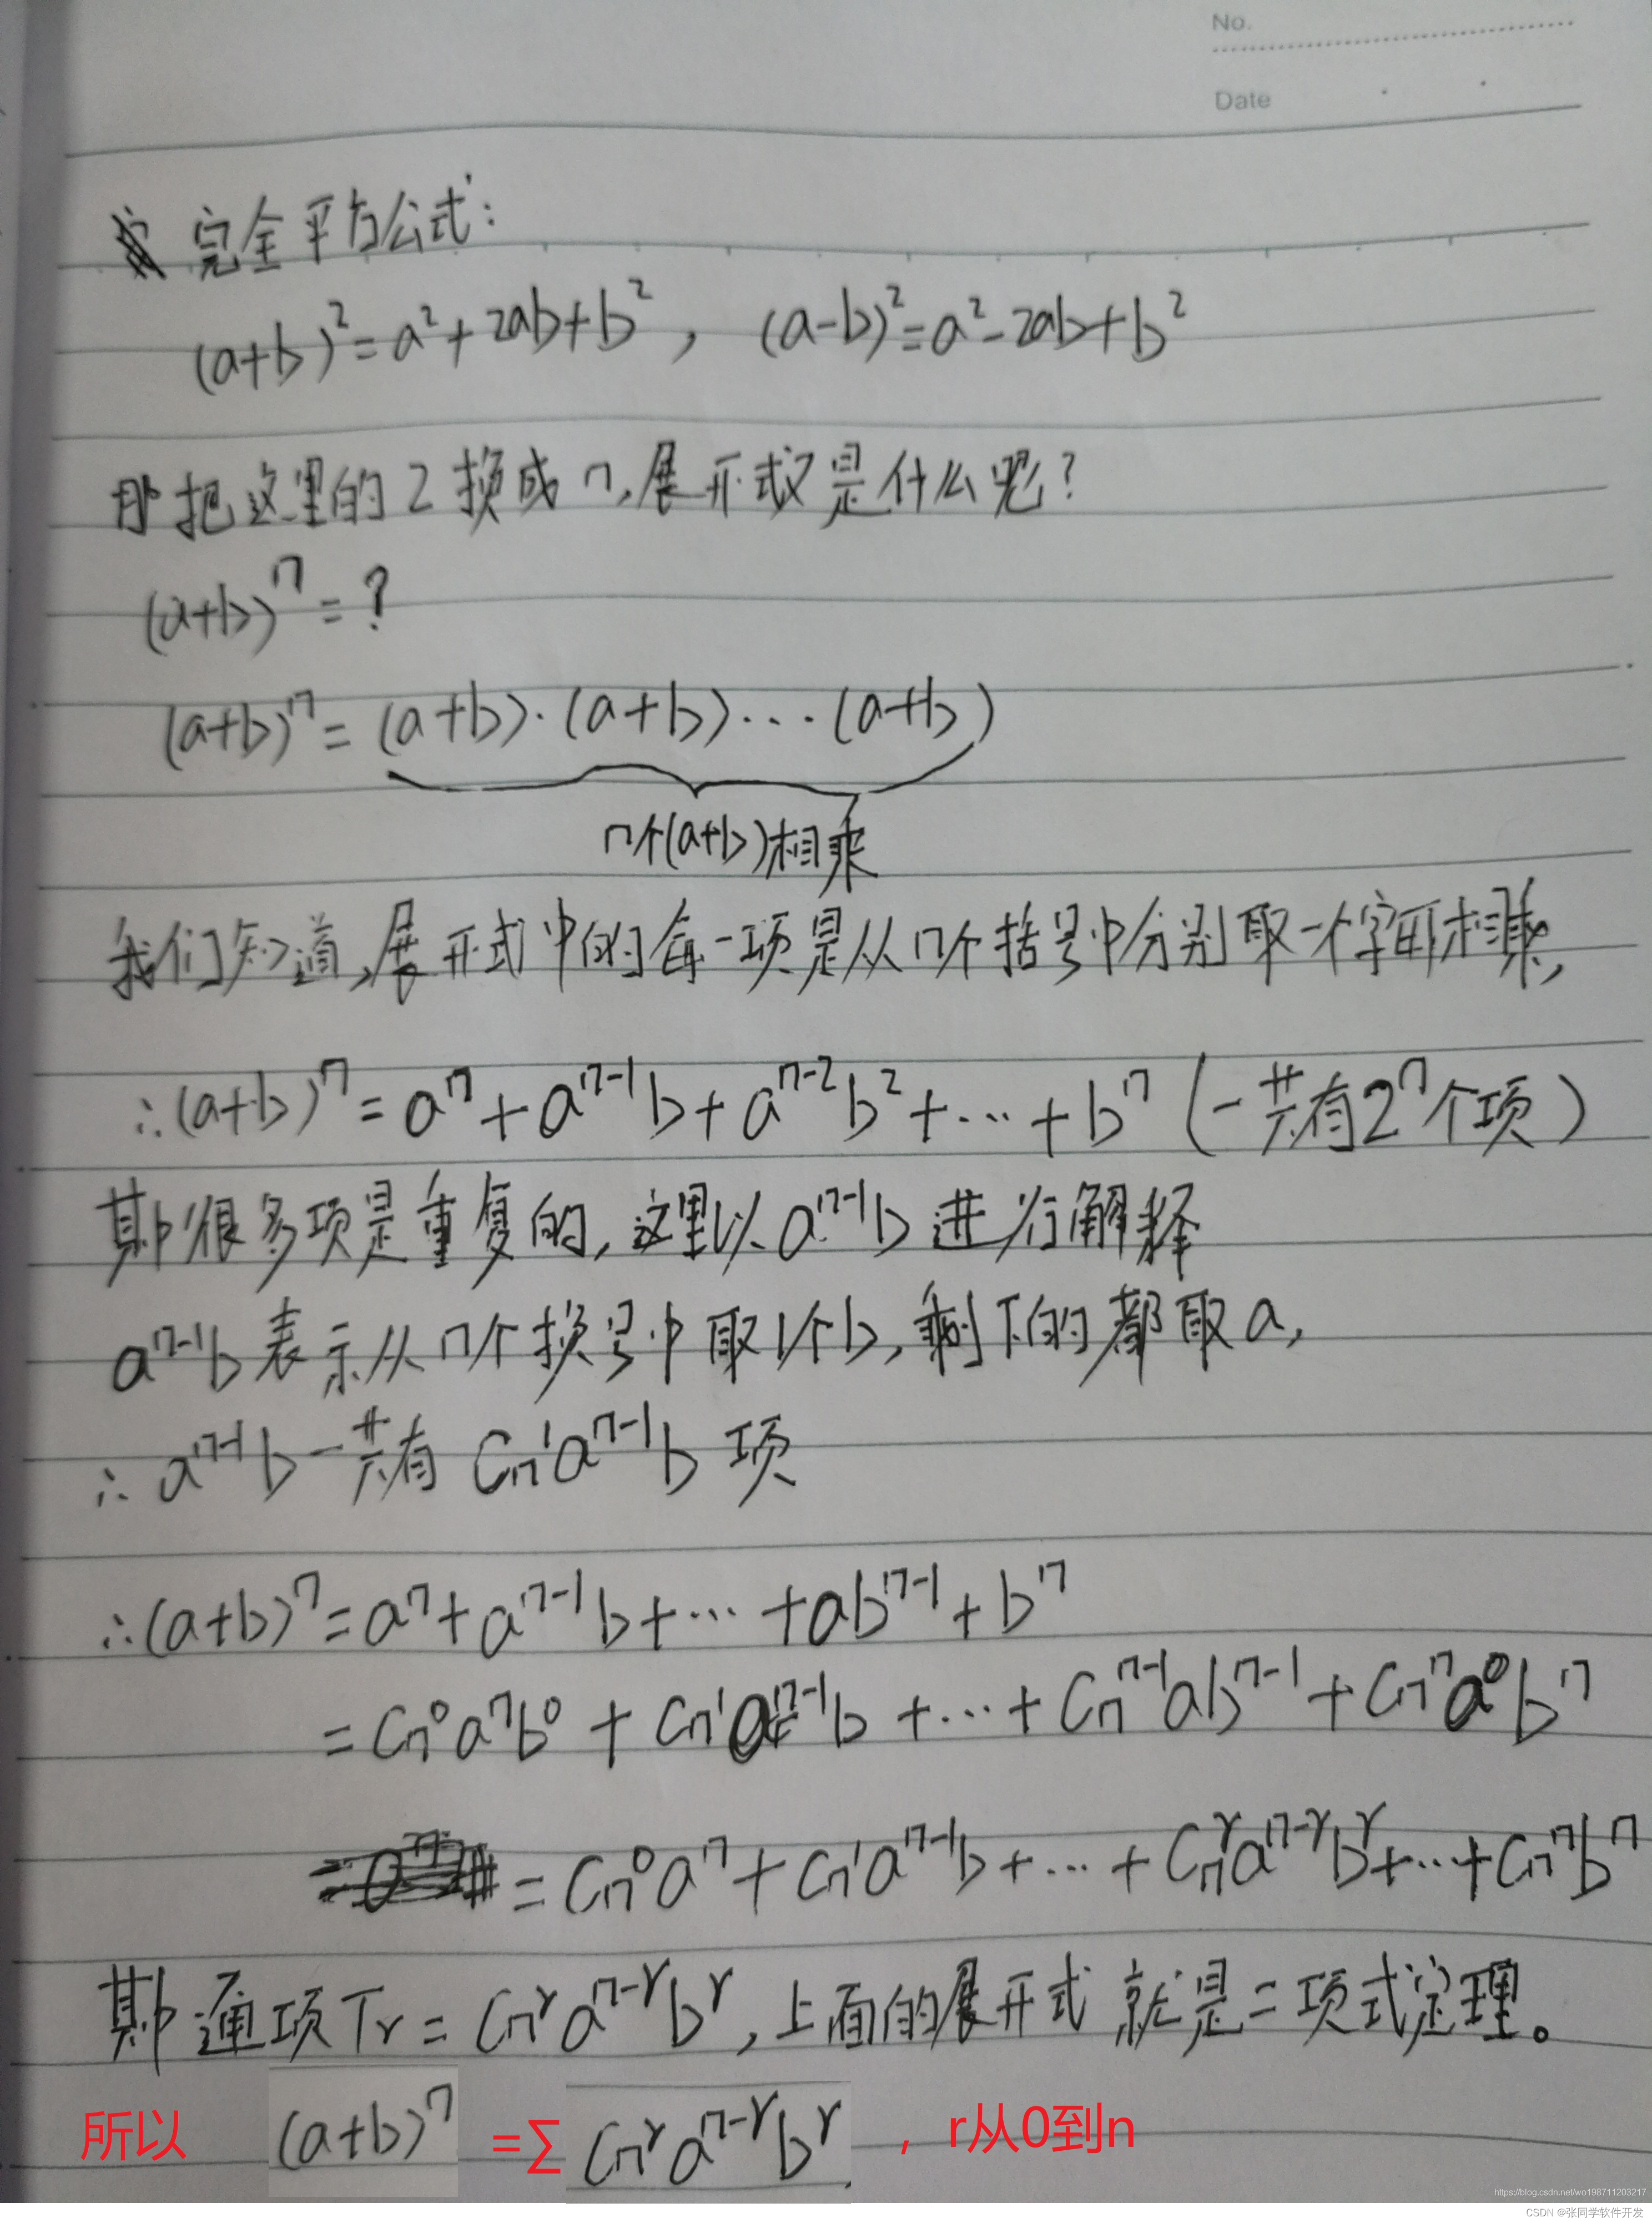 No.
Date
完全平方公式:
(a+b)²=a²+2ab+b², (a-b)²=a²-2ab+b²
那把这里的2换成n,展开式又是什么呢?
(a+b)ⁿ=?
(a+b)ⁿ=(a+b)·(a+b)···(a+b)
n个(a+b)相乘
我们知道,展开式中的每一项是从n个括号中分别取一个字母相乘,
∴(a+b)ⁿ=aⁿ+aⁿ⁻¹b+aⁿ⁻²b²+···+bⁿ(一共有2ⁿ个项)
其中很多项是重复的,这里以aⁿ⁻¹b进行解释
aⁿ⁻¹b表示从n个换号中取1个b,剩下的都取a,
∴aⁿ⁻¹b一共有Cₙ¹aⁿ⁻¹b项
∴(a+b)ⁿ=aⁿ+aⁿ⁻¹b+···+abⁿ⁻¹+bⁿ
=Cₙ⁰aⁿb⁰+Cₙ¹aⁿ⁻¹b+···+Cₙⁿ⁻¹abⁿ⁻¹+Cₙⁿa⁰bⁿ
=Cₙ⁰aⁿ+Cₙ¹aⁿ⁻¹b+···+Cₙʳaⁿ⁻ʳbʳ+···+Cₙⁿbⁿ
其中通项Tr=Cₙʳaⁿ⁻ʳbʳ,上面的展开式就是二项式定理。
所以 (a+b)ⁿ =∑ Cₙʳaⁿ⁻ʳbʳ , r从0到n
https://blog.csdn.net/wo198711203217
CSDN @张同学软件开发